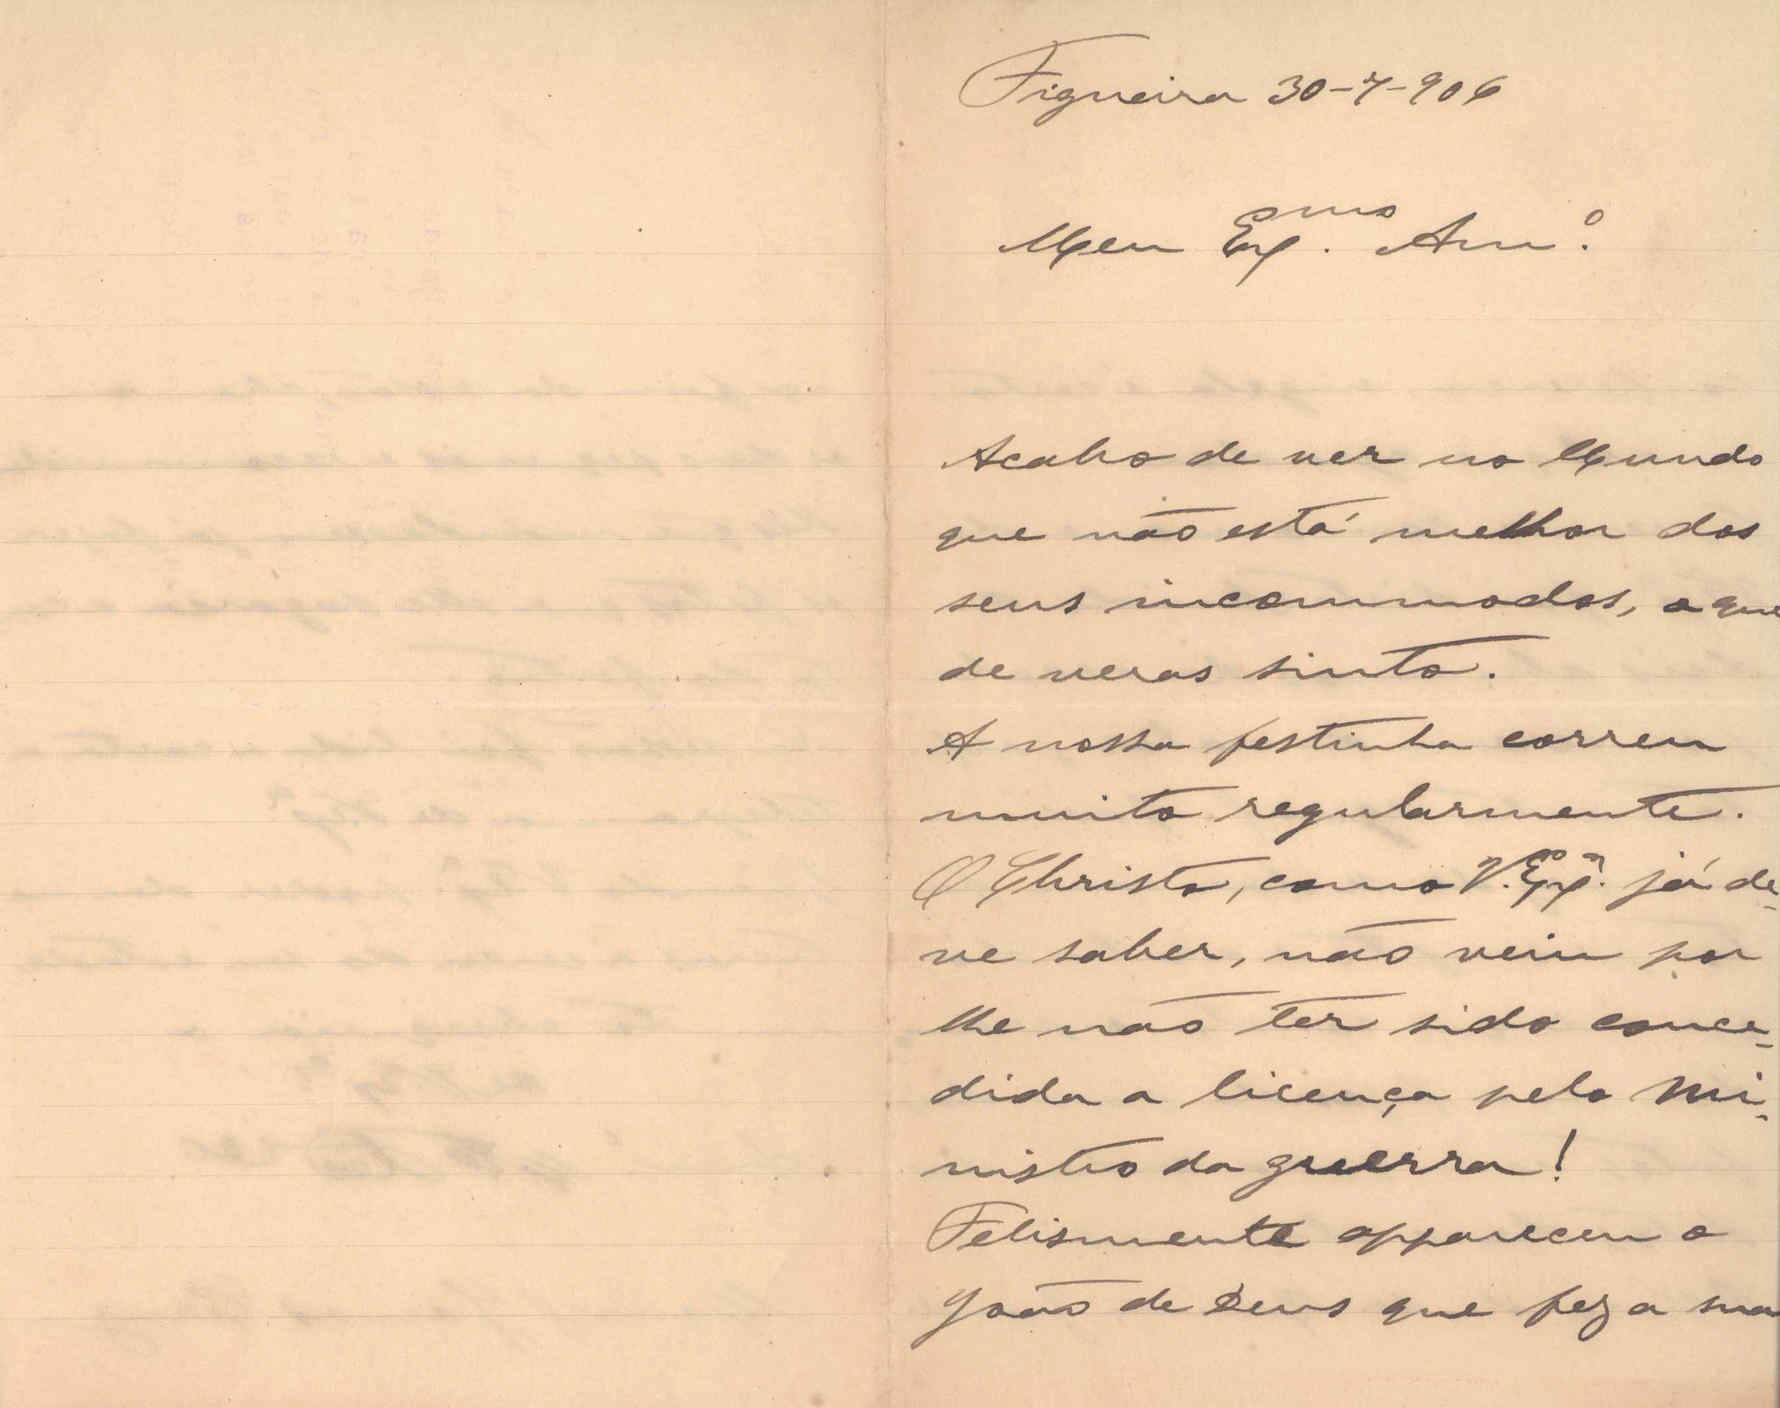 Figueira 30-7-906
Meu Exmo. Amo.
Acabo de ver no Mundo
que não está melhor dos
seus incommodos, o que
de veras sinto.
A nossa festinha correu
muito regularmente.
O Christo, como V. Exa. já de-
ve saber, não veiu por
lhe não ter sido conce-
dida a licença pelo Mi-
nistro da guerra!
Felismente appareceu o
João de Deus que fez a sua